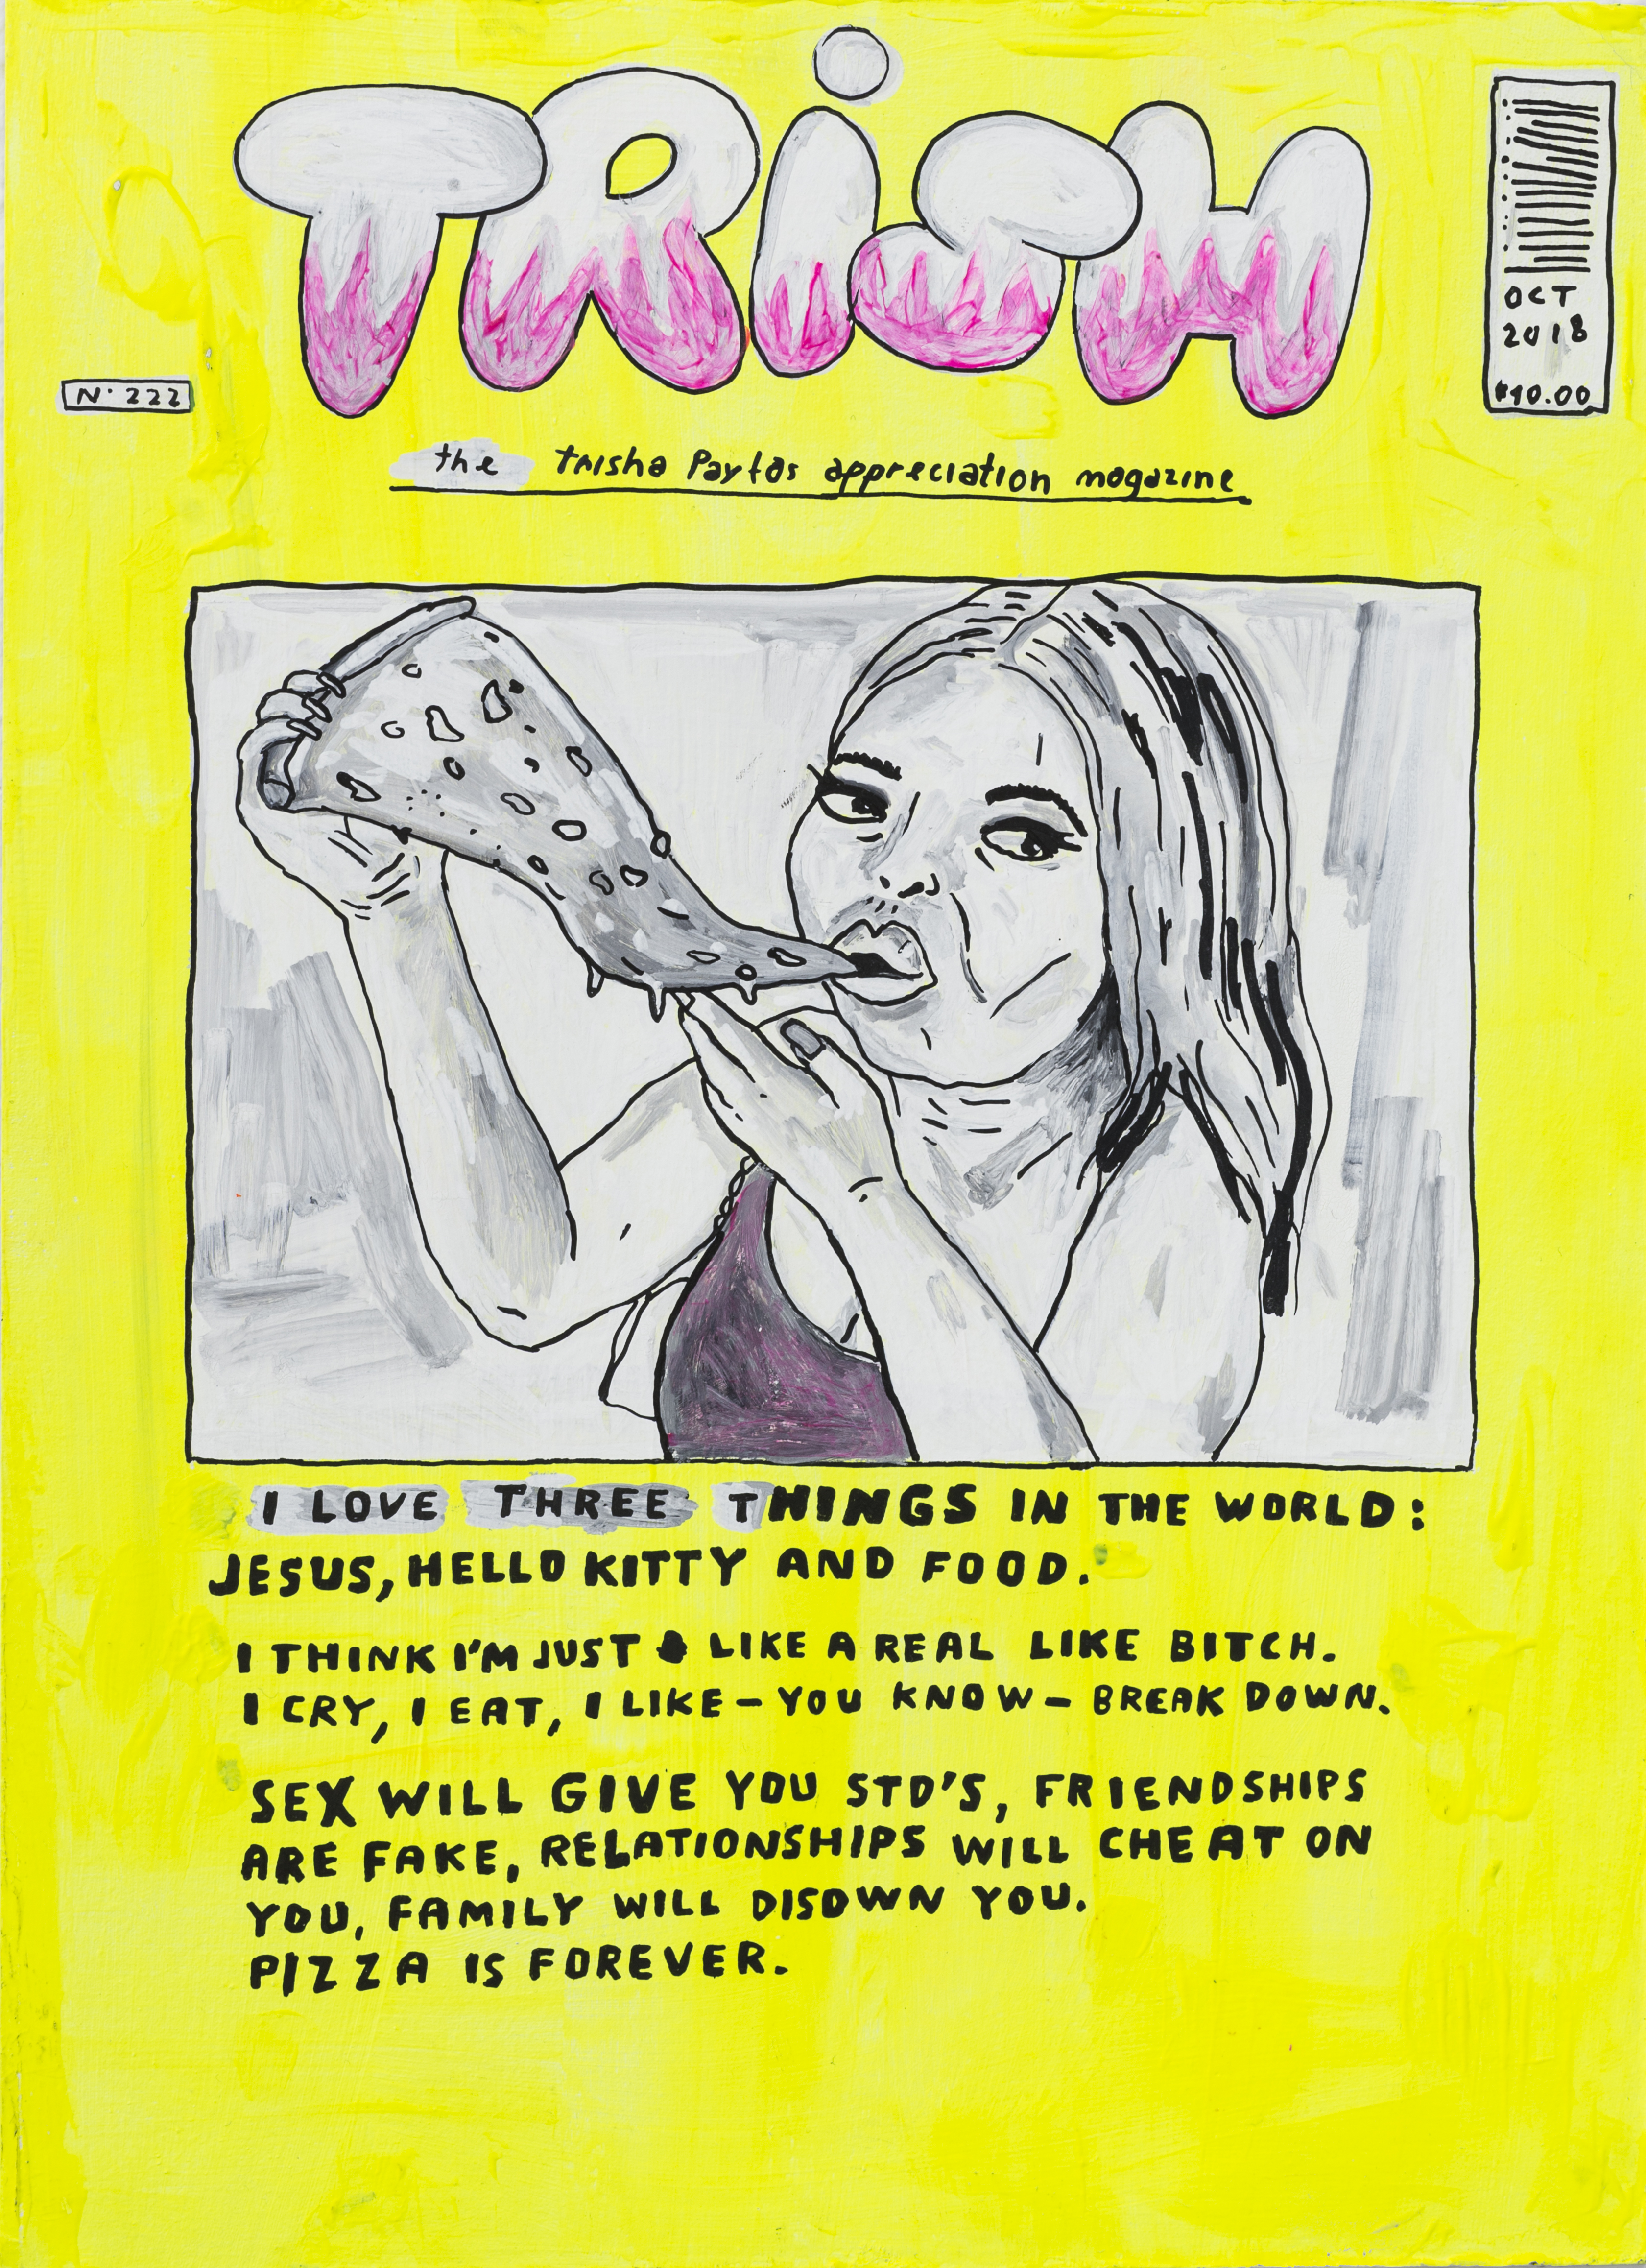 TRiSH
OCT
2018
$10.00
N· 222
the trisha Paytas appreciation magazine
I LOVE THREE THINGS IN THE WORLD:
JESUS, HELLO KITTY AND FOOD.
I THINK I'M JUST LIKE A REAL LIKE BITCH.
I CRY, I EAT, I LIKE – YOU KNOW – BREAK DOWN.
SEX WILL GIVE YOU STD'S, FRIENDSHIPS
ARE FAKE, RELATIONSHIPS WILL CHEAT ON
YOU, FAMILY WILL DISOWN YOU.
PIZZA IS FOREVER.